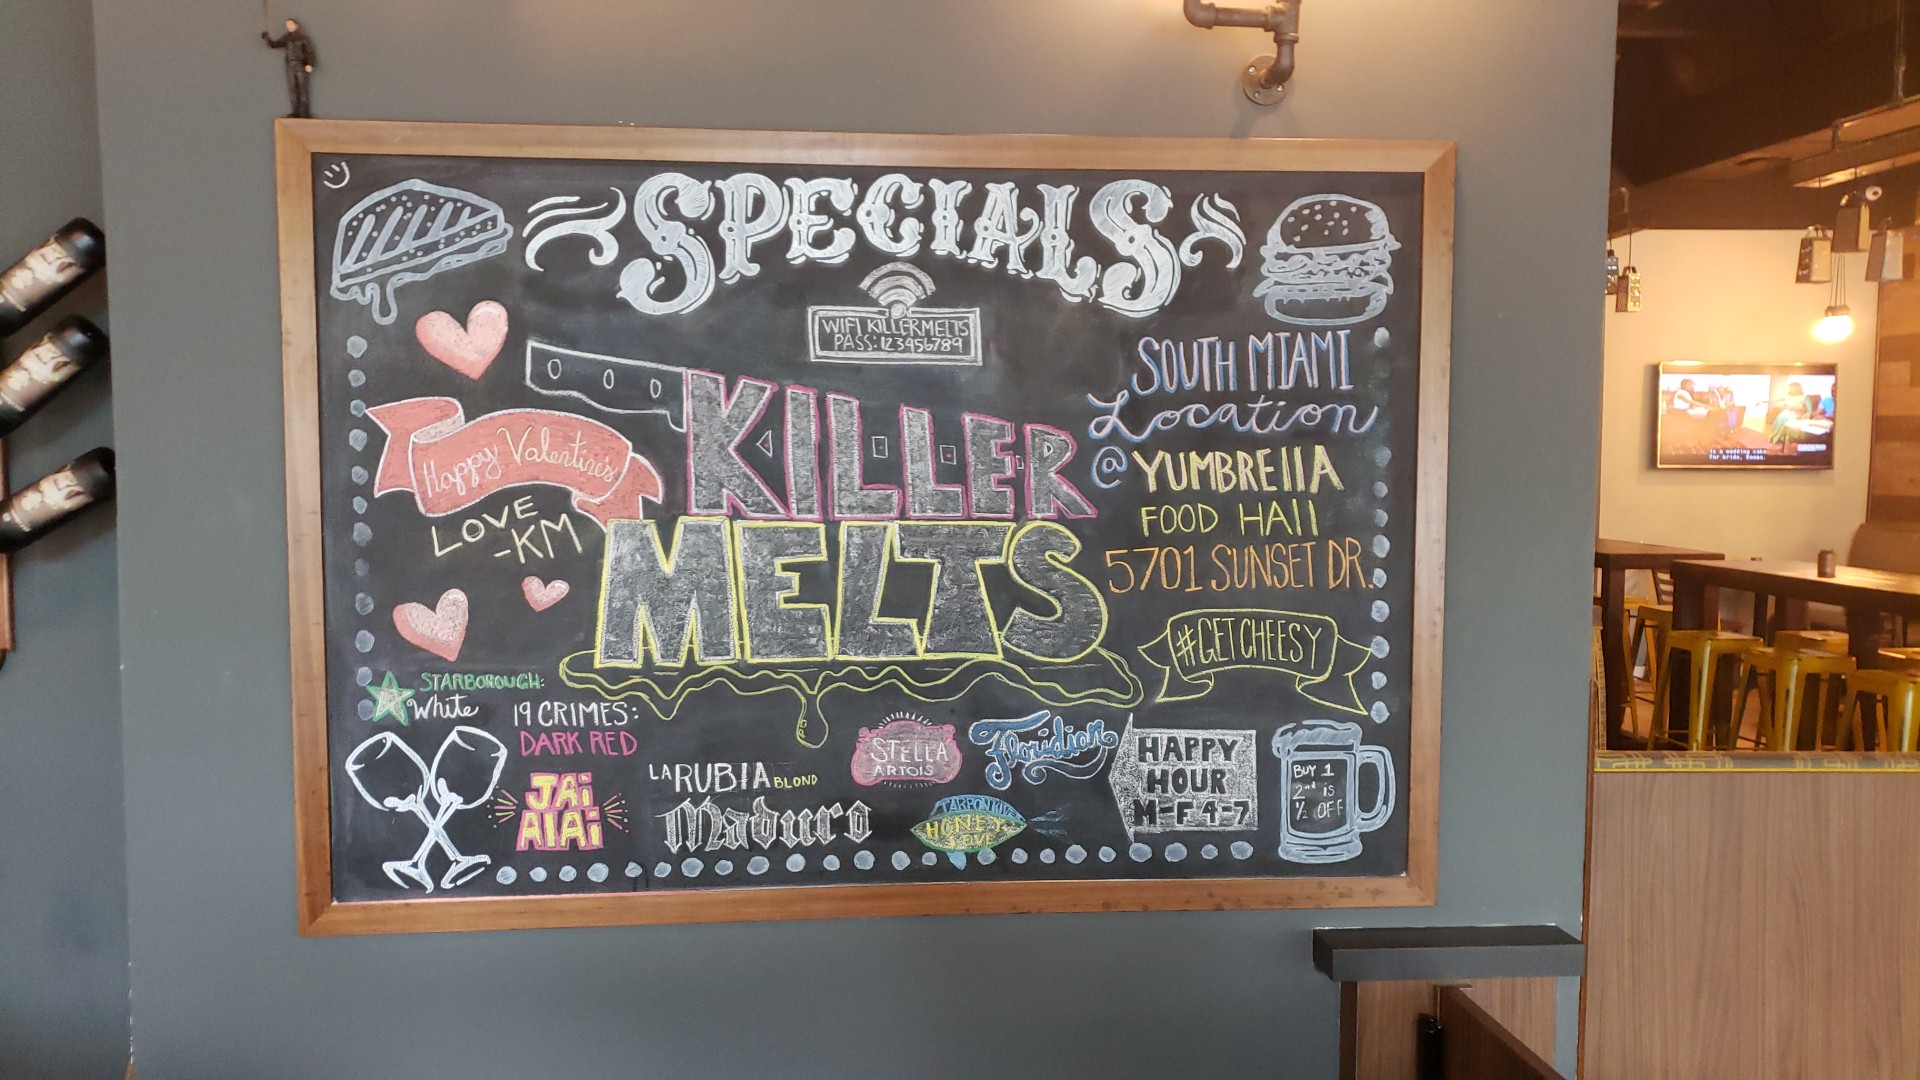 SPECIALS
WIFI KILLERMELTS
PASS: 123456789
KILLER
MELTS
Happy Valentine's
LOVE
-KM
SOUTH MIAMI
Location
@ YUMBRELLA
FOOD HALL
5701 SUNSET DR.
#GETCHEESY
STARBOROUGH:
White
19 CRIMES:
DARK RED
JAi
AlAi
LA RUBIA BLOND
Maduro
STELLA
ARTOIS
Floridian
HONEY
HAPPY
HOUR
M-F 4-7
BUY 1
2nd is
1/2 OFF